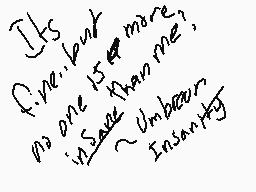 Its
fine..but
no one is more
insane than me?
~ Umbreon
Insanity